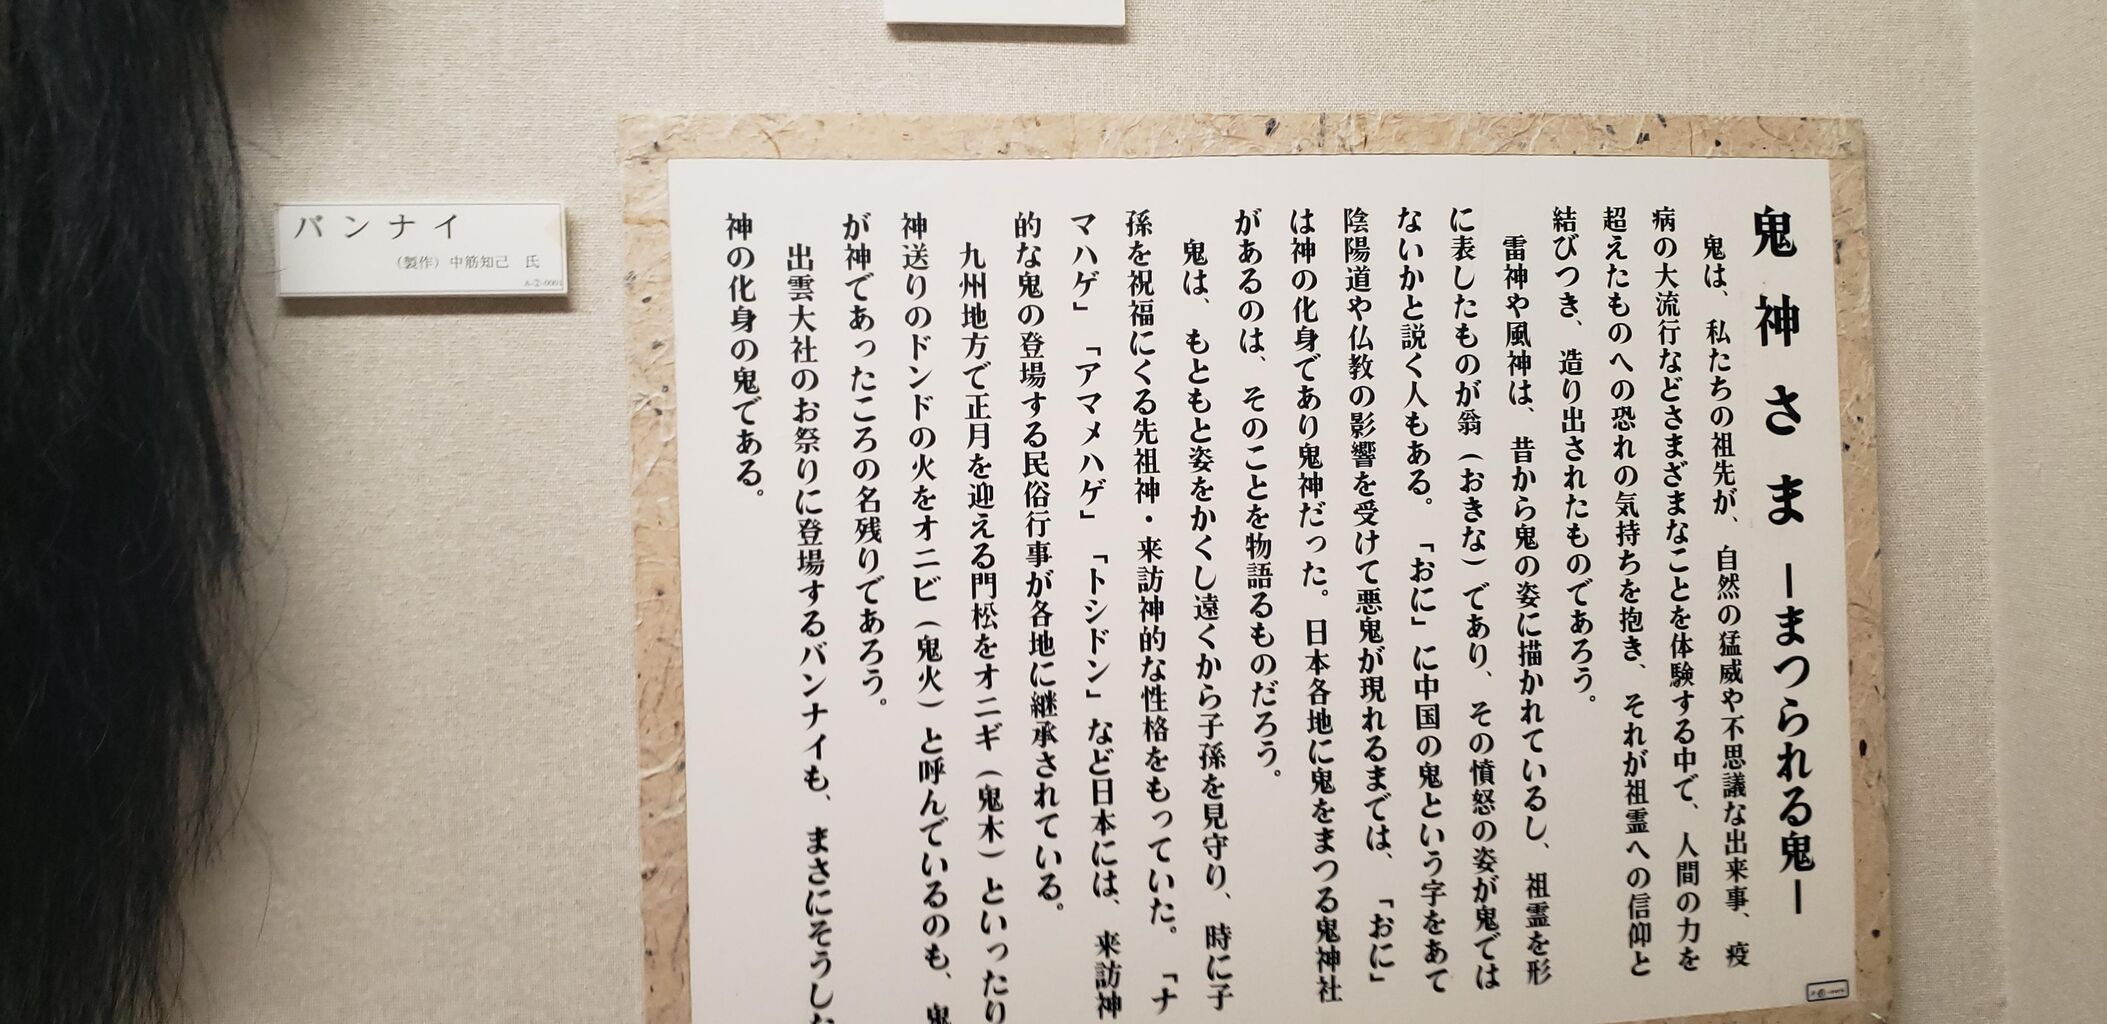 バンナイ
（製作）中筋知己　氏
A-②-0001
鬼神さま ーまつられる鬼ー
鬼は、私たちの祖先が、自然の猛威や不思議な出来事、疫
病の大流行などさまざまなことを体験する中で、人間の力を
超えたものへの恐れの気持ちを抱き、それが祖霊への信仰と
結びつき、造り出されたものであろう。
雷神や風神は、昔から鬼の姿に描かれているし、祖霊を形
に表したものが翁（おきな）であり、その憤怒の姿が鬼では
ないかと説く人もある。「おに」に中国の鬼という字をあて
陰陽道や仏教の影響を受けて悪鬼が現れるまでは、「おに」
は神の化身であり鬼神だった。日本各地に鬼をまつる鬼神社
があるのは、そのことを物語るものだろう。
鬼は、もともと姿をかくし遠くから子孫を見守り、時に子
孫を祝福にくる先祖神・来訪神的な性格をもっていた。「ナ
マハゲ」「アマメハゲ」「トシドン」など日本には、来訪神
的な鬼の登場する民俗行事が各地に継承されている。
九州地方で正月を迎える門松をオニギ（鬼木）といったり
神送りのドンドの火をオニビ（鬼火）と呼んでいるのも、鬼
が神であったころの名残りであろう。
出雲大社のお祭りに登場するバンナイも、まさにそうした
神の化身の鬼である。